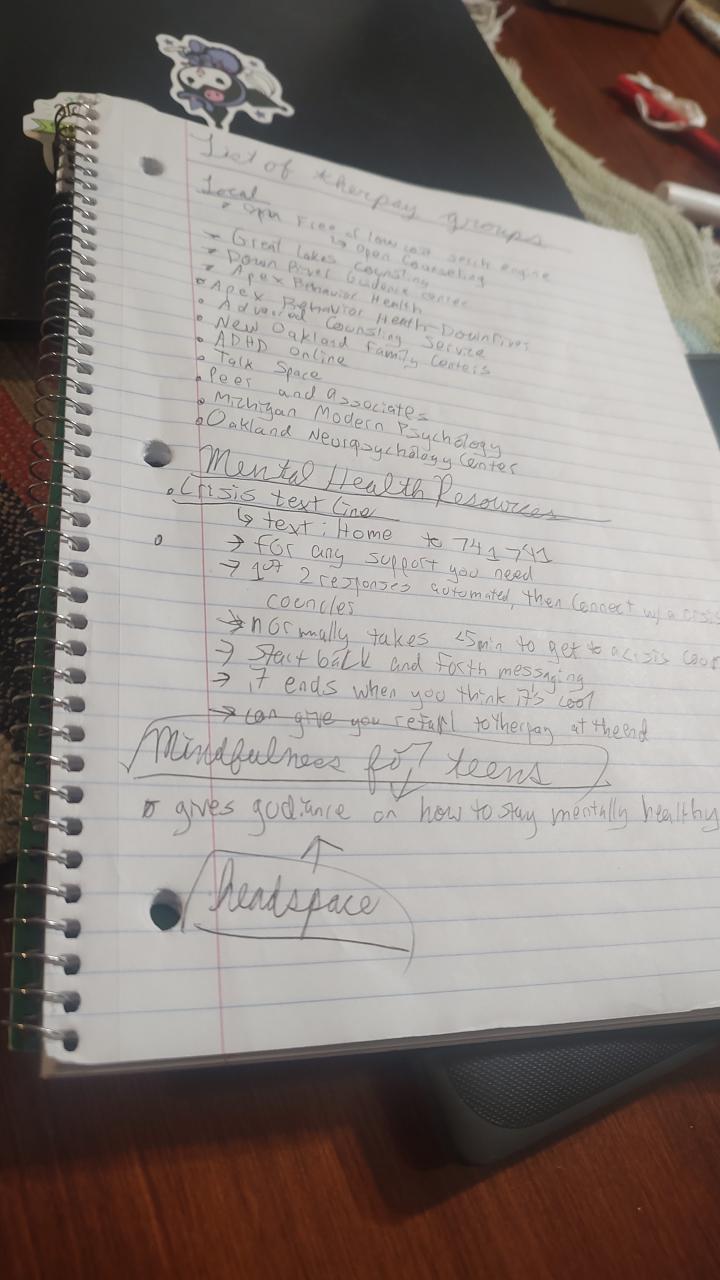 List of therpay groups
Local
Free of low cost serch engine
↳ Open Counseling
Great Lakes Counsling
Down River Guidence center
Apex Behavior Health
Apex Behavior Heath-Downrives
Advanced Counsling Service
New Oakland Family Centers
ADHD Online
Talk Space
Peer and associates
Michigan Modern Psychology
Oakland Neuropsychology Center
Mental Health Resources
Crisis text line
↳ text: Home to 741741
→ for any support you need
→ 1st 2 responses automated, then connect w/ a crisis
councles
→ normally takes <5min to get to a crisis
→ start back and forth messaging
→ it ends when you think it's cool
→ can give you refurl to therpay at the end
Mindfulness for teens
gives godiance on how to stay mentally healthy
headspace